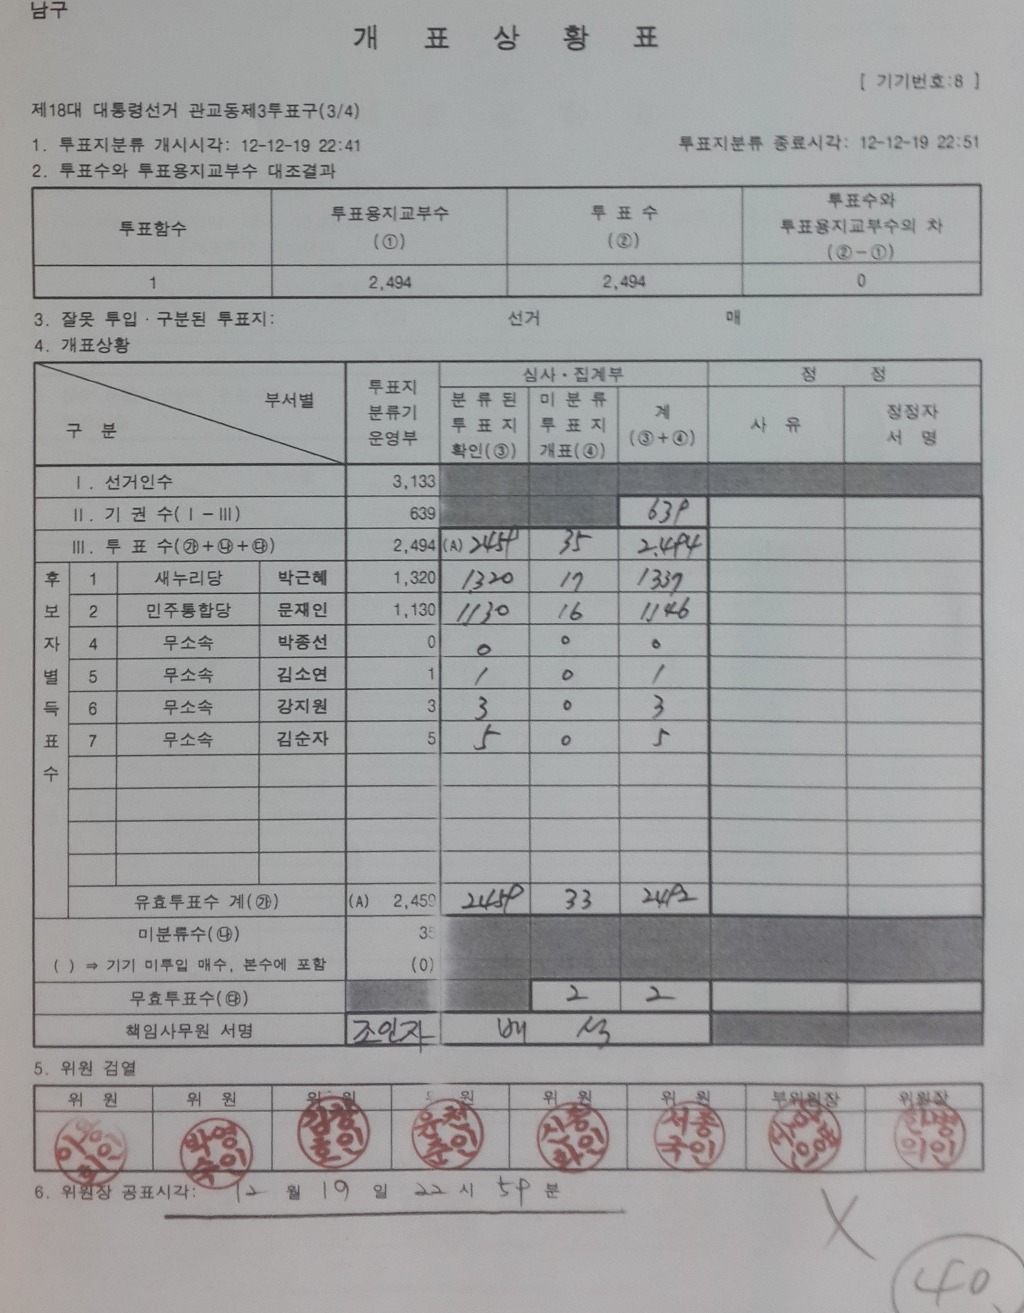 남구
개 표 상 황 표
[ 기기번호:8 ]
제18대 대통령선거 관교동제3투표구(3/4)
1. 투표지분류 개시시각: 12-12-19 22:41 투표지분류 종료시각: 12-12-19 22:51
2. 투표수와 투표용지교부수 대조결과
투표함수 투표용지교부수 (①) 투 표 수 (②) 투표수와 투표용지교부수의 차 (②-①)
1 2,494 2,494 0
3. 잘못 투입·구분된 투표지: 선거 매
4. 개표상황
부서별 구 분 투표지 분류기 운영부 심사·집계부 정 정
분 류 된 투 표 지 확인(③) 미 분 류 투 표 지 개표(④) 계 (③+④) 사 유 정정자 서 명
Ⅰ. 선거인수 3,133
Ⅱ. 기 권 수(Ⅰ-Ⅲ) 639 639
Ⅲ. 투 표 수(㉮+㉯+㉰) 2,494 (A) 2459 35 2,494
후보자별득표수
1 새누리당 박근혜 1,320 1320 17 1337
2 민주통합당 문재인 1,130 1130 16 1146
4 무소속 박종선 0 0 0 0
5 무소속 김소연 1 1 0 1
6 무소속 강지원 3 3 0 3
7 무소속 김순자 5 5 0 5
유효투표수 계(㉮) (A) 2,459 2459 33 2492
미분류수(㉯) 35
( ) ⇒ 기기 미투입 매수, 본수에 포함 (0)
무효투표수(㉰) 2 2
책임사무원 서명 조인자
5. 위원 검열
위 원 위 원 위 원 위 원 위 원 위 원 부위원장 위원장
6. 위원장 공표시각: 12 월 19 일 22 시 59 분
X
40